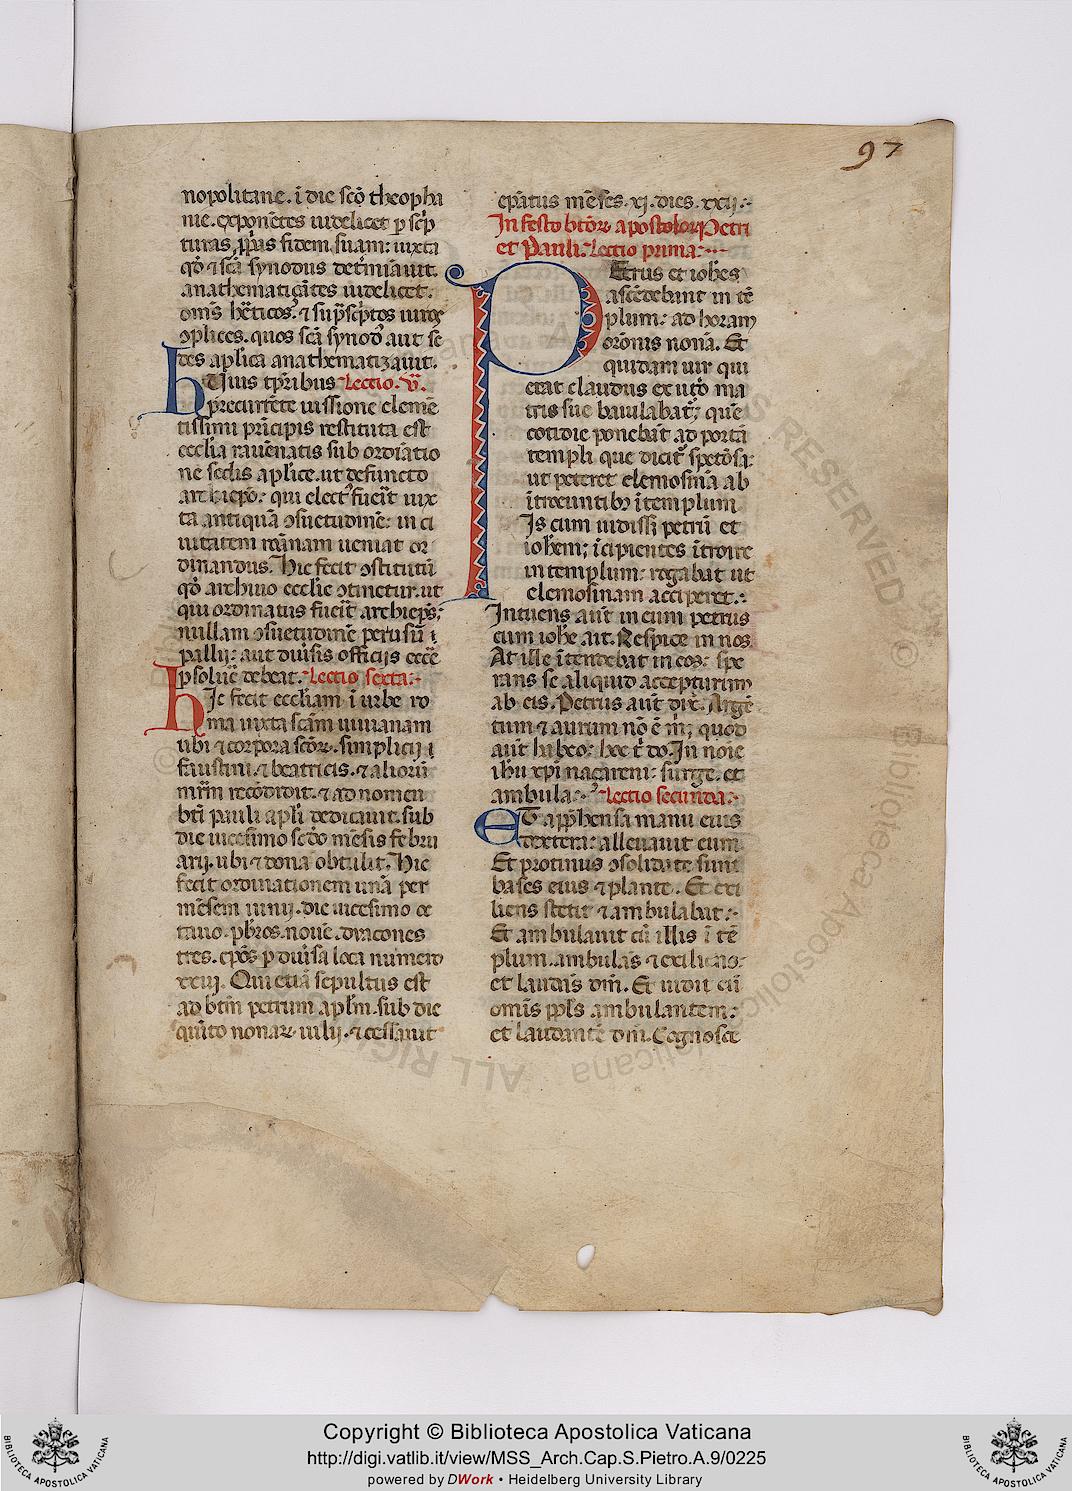 97
nopolitane. ī die sc̄o theopha
nie. exponētes uidelicet ꝑ sc̄p
turas ꝓp̄as fidem suam: iuxta
qd̄ ⁊ sc̄a synodus det̄miauit.
anathematiçātes uidelicet.
om̄s hēticos. ⁊ sup̄sc̄ptos uiros
ↄplices. quos sc̄a synod᷒ aut se
des aplica anathematizauit.
hUius tp̄ribus Lectio. v̄.
precurrēte iussione clemē
tissimi prīcipis restituta est
ecclīa rauēnatis sub ordīatio
ne sedis aplice. ut defuncto
archiepō: qui elect᷒ fuēit iux
ta antiquā ↄsuetudinē: in ci
uitatem romanam ueniat or
dinandus. Hic fecit ↄstitutū
qd̄ archiuo ecclīe ↄtinetur. ut
qui ordinatus fuēit archiep̄s:
nullam ↄsuetudinē persū ī
pallij: aut diuīsis officijs eccīe
psoluē debeat. Lectio sexta:
hIc fecit eccliam ī urbe ro
ma iuxta scām uiuianam
ubi ⁊ corpora sc̄oꝝ. simplicij ī
faustini. ⁊ beatricis. ⁊ alioru
mr̄m recōdidit. ⁊ ad nomen
bt̄i pauli apl̄i dedicauit. sub
die uicesimo sc̄do mēsis febru
arij. ubi ⁊ dona obtulit. Hic
fecit ordinationem unā per
mēsem iunij. die uicesimo oc
tauo. pb̄ros. nouē. diacones
tres. ep̄os ꝑ diuīsa loca numero
xxiij. Qui etiā sepultus est
ad bt̄m petrum apl̄m. sub die
quīto nonaꝝ iulij. ⁊ cessauit
ep̄atus mēses. xj. dies. xxij:
In festo bt̄oꝝ apostoloꝝ Petri
et Pauli. Lectio prima:
PEtrus et ioh̄es
ascēdebant in tē
plum: ad horam
orōnis nonā. Et
quidam uir qui
erat claudus ex ut̄o ma
tris sue baiulabat᷑; quē
cotidie ponebāt ad portā
templi que dicit᷑ spetōsa:
ut peteret elemosinā ab
ītroeuntib᷒ ī templum.
Is cum uidiss᷑ petrū et
ioh̄em; īcipientes ītroire
in templum: rogabat ut
elemosinam acciperet.
Intuens aūt in eum petrus
cum ioh̄e ait. Respice in nos
At ille ītendebat in eos: spe
rans se aliquid accepturum
ab eis. Petrus aūt dix̄. Argē
tum ⁊ aurum nō ē m̄; quod
aūt habeo: hoc t̄ do. In noīe
ih̄u xp̄i naçareni: surge. et
ambula: Lectio secunda:
ET app̄hensa manu eius
dextera: alleuauit eum
Et protinus ↄsolidate sunt
bases eius ⁊ plante. Et exi
liens stetit ⁊ ambulabat:
Et ambulauit cū illis ī tē
plum. ambulās ⁊ exiliens:
et laudās dm̄. Et uidit eū
omīs ppl̄s ambulantem:
et laudantē dm̄. Cognosce
Copyright © Biblioteca Apostolica Vaticana
http://digi.vatlib.it/view/MSS_Arch.Cap.S.Pietro.A.9/0225
powered by DWork • Heidelberg University Library